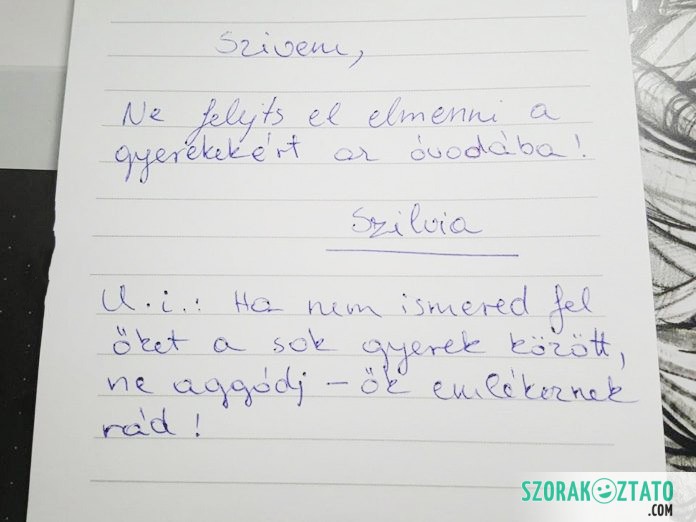 Szivem,
Ne felyts el elmenni a
gyerekekért az óvodába!
Szilvia
U.i.: Ha nem ismered fel
őket a sok gyerek között,
ne aggódj – ők emlékeznek
rád!
SZORAKOZTATO
.COM